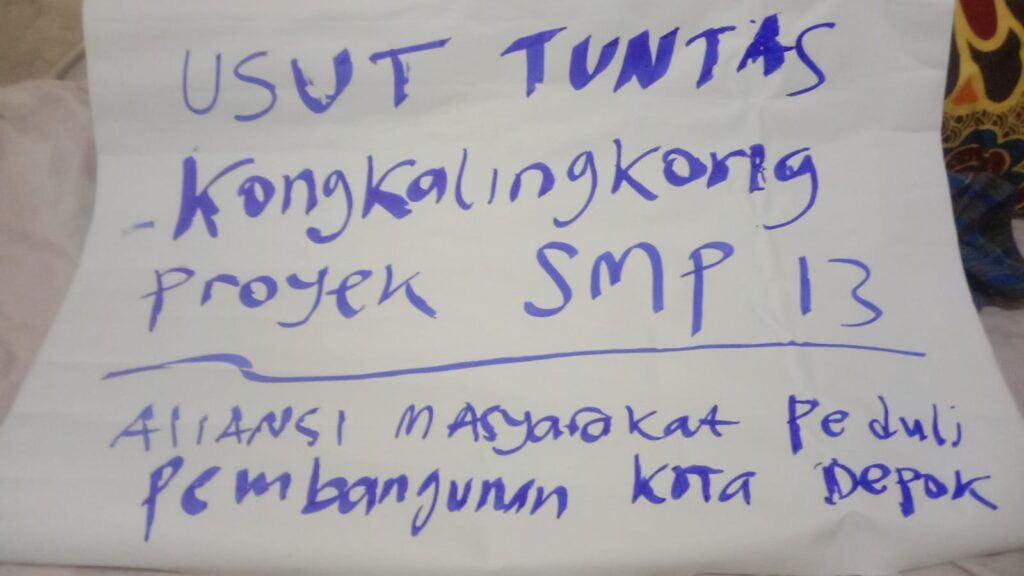 USUT TUNTAS
- Kongkalingkong
Proyek SMP 13
Aliansi Masyarakat Peduli
Pembangunan Kota Depok